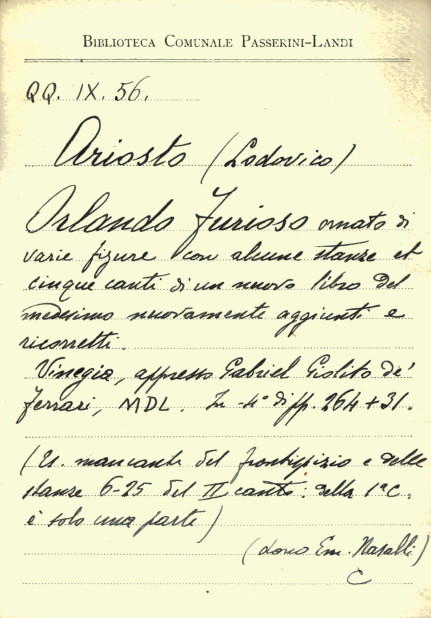 BIBLIOTECA COMUNALE PASSERINI-LANDI
QQ. IX. 56.
Ariosto (Lodovico)
Orlando Furioso ornato di
varie figure con alcune stanze et
cinque canti di un nuovo libro del
medesimo nuovamente aggiunti e
ricorretti.
Vinegia, appresso Gabriel Giolito de'
Ferrari, MDL. In-4° di pp. 264+31.
(Es. mancante del frontispizio e delle
stanze 6-25 del II canto: della 1ª C.
è solo una parte)
(dono Em. Nasalli)
C